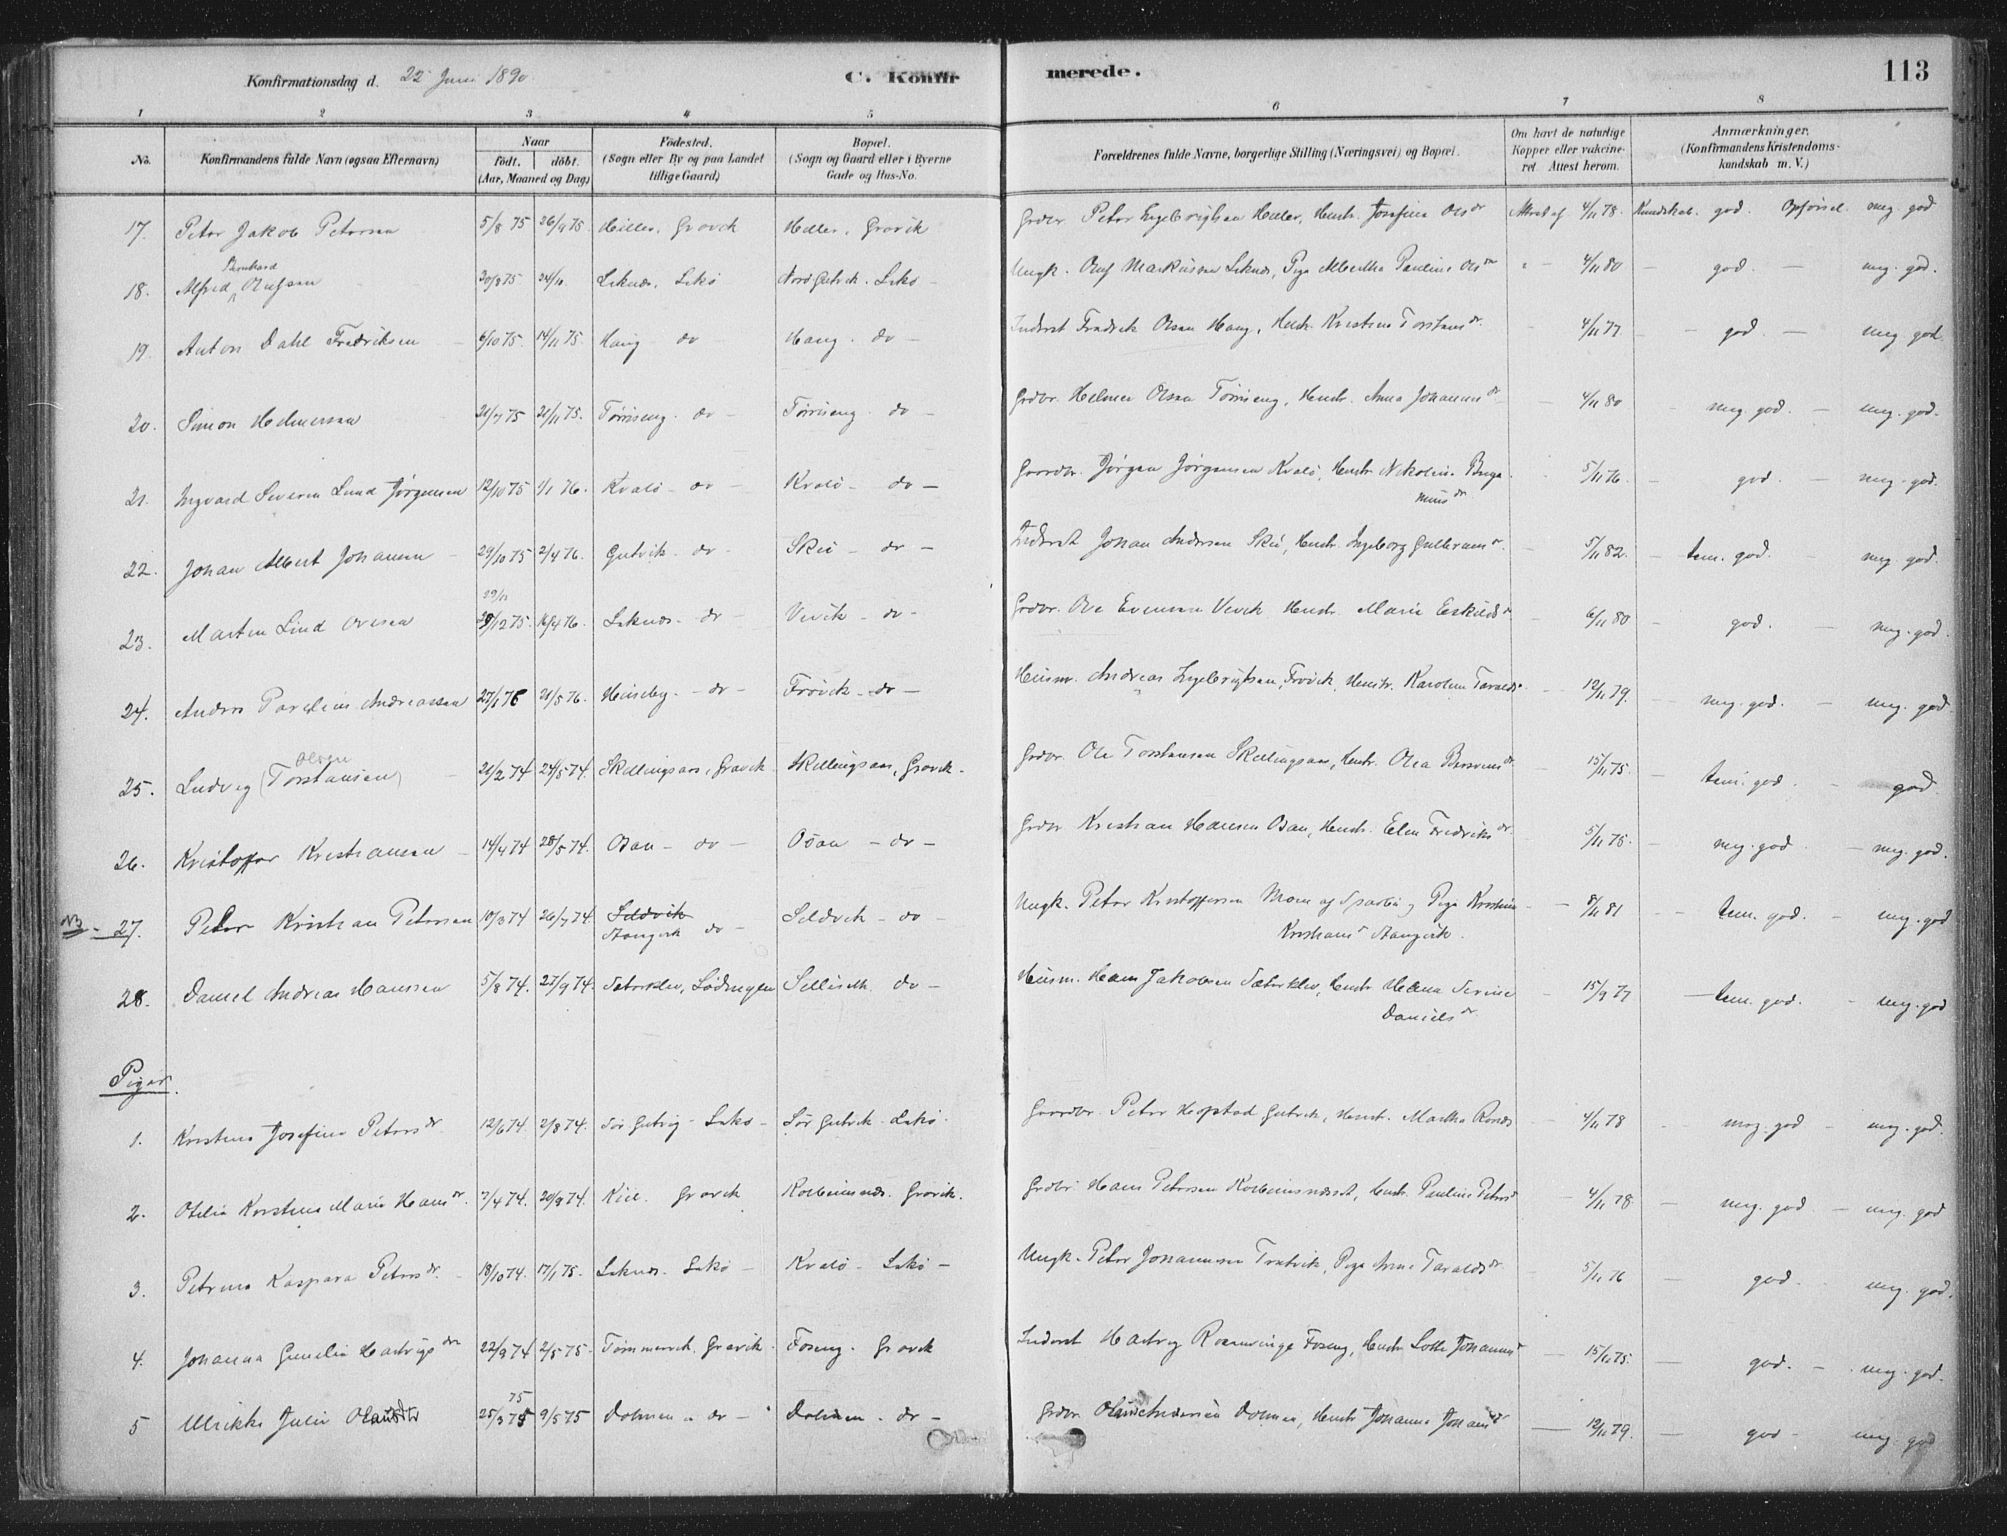 Konfirmationsdag d. 22 Juni 1890.
C. Konfirmerede.
113
1 2 3 4 5 6 7 8
No.
Konfirmandens fulde Navn (ogsaa Efternavn)
Naar
födt. döbt.
(Aar, Maaned og Dag)
Födested.
(Sogn eller By og paa Landet
tillige Gaard)
Bopæl.
(Sogn og Gaard eller i Byerne
Gade og Hus-No.
Forældrenes fulde Navne, borgerlige Stilling (Næringsvei) og Bopæl.
Om havt de naturlige
Kopper eller vakcine-
ret. Attest herom.
Anmærkninger,
(Konfirmandens Kristendoms-
kundskab m. V.)
17. Peter Jakob Petersen 5/8 75 26/9 75. Heller, Gravik Heller, Gravik Grdbr. Peter Engebrigtsen Heller, Hustr. Josefine Olsdr Attest af 4/11 78. Kundskab. god. Opförsel. meg. god
18. Alfred Bernhard Olufsen 20/8 75 24/10 Leknes, Lekö Nord Gutvik. Lekö - Ungk. Oluf Markussen Leknes, Pige Albertha Pauline Olsdr 4/11 80 god. - meg. god.
19. Anton Dahl Fredriksen 6/10 75. 14/11 75. Haug do Haug. do - Inderst Fredrik Olsen Haug, Hustr. Kristine Torstensdr. 4/11 77 god. - meg. god.
20. Simon Helmersen 21/7 75 21/11 75. Törriseng. do - Törriseng. do - Grdbr. Helmer Olsen Törriseng, Hustr. Anna Johannesdr 4/11 80 meg. god. - meg. god.
21. Ingvard Severin Lund Jörgensen 12/10 75 1/1 76. Kvalö - do - Kvalö - do - Gaardbr. Jörgen Jörgensen Kvalö, Hustr. Nikoline Benja-
minsdr 5/11 76. god. - meg. god.
22. Johan Albert Johansen 29/10 75 2/4 76. Gutvik. do - Skei - do - Inderst Johan Andersen Skei, Hustr. Ingeborg 5/11 82. - tem. god. meg. god.
23. Marten Lind Ovesen 29/11 29/12 75. 16/4 76. Leknes - do - Vevik - do - Grdbr. Ove Evensen Vevik Hustr. Marie Eskildsdr 6/11 80 god. - meg. god.
24. Anders Parelius Andreassen 27/1 76 21/5 76. Huseby. - do - Frövik - do - Husm. Andreas Ingebrigtsen, Frövik, Hustr. Karoline Taraldsdr 12/11 79. meg. god. - meg. god.
25. Ludvig (Torstensen) Olsen 21/2 74 24/5 74. Skillingsaas, Gravik Skillingsaas, Gravik. Grdbr. Ole Torstensen Skillingsaas, Hustr. Olea 15/11 75. - tem. god. - god.
26. Kristoffer Kristiansen 14/4 74 28/5 74. Osan - do - Osan - do - Grdbr. Kristian Hansen Osan, Hustr. Elen Fredriksdr. 5/11 75. - meg. god - meg. god.
NB - 27. Peter Kristian Petersen 10/3 74 26/7 74. Sildvik
do - Sildvik - do - Ungk. Peter Kristoffersen Moen af Sparbu, Pige Kristine
Kristiansdr 8/11 81 tem. god. - meg. god
28. Daniel Andreas Hanssen 5/8 74. 27/9 74. Sæterklev, Lödingen do - Husm. Hans Jakobsen Sæterklev, Hustr. Helena Serine
Danielsdr. 15/9 77 - tem. god. - meg. god
Piger.
1. Kristine Josefine Petersdr 12/6 74. 2/8 74. Sör Gutvig - Lekö - Sör Gutvik. Lekö. Gaardbr. Peter Hopstad Gutvik, Hustr. Martha 4/11 78 meg. god - meg. god.
2. Otelie Kirstine Marie Hansdr. 7/4 74. 20/9 74. Kiil. Gravik Kolbeinsnes. Gravik. Grdbr. Hans Petersen Kolbeinsnesset, Hustr. Pauline Petersdr 4/11 78 - meg. god - meg. god
3. Petrine Kaspara Petersdr. 18/10 74. 17/1 75. Leknes. Lekö - Kvalö - Lekö - Ungk. Peter Johannesen, Pige Anne Taraldsdr 5/11 76 - god. meg. god.
4. Johanna Gunelia Hartvigsdtr 22/9 74 2/5 75. Tömmervik. Gravik. Foseng. Gravik Inderst Hartvig Rosenvinge Foseng, Hustr. Lotte Johannesdr 15/11 75. - god. - meg. god.
5 Ulrikke Julie Olausdtr 25/3 75 75 9/5 75 Dolmen - do - Dolmen. do - Grdbr. Olaus Andersen Dolmen, Hustr Johanna Johansdr - 12/11 79. - god - meg. god